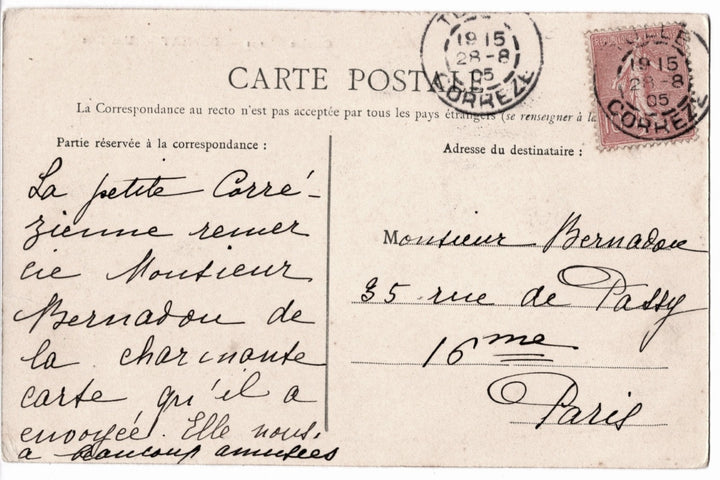 CARTE POSTALE
La Correspondance au recto n'est pas acceptée par tous les pays étrangers (se renseigner à la
Partie réservée à la correspondance :
La petite Corré-
zienne remer
cie Monsieur
Bernadou de
la charmante
carte qu'il a
envoyée. Elle nous
a beaucoup amusées
Adresse du destinataire :
Monsieur Bernadou
35 rue de Passy
16me
Paris
19 15
28-8
05
CORREZE
TULLE
19 15
28-8
05
CORREZE